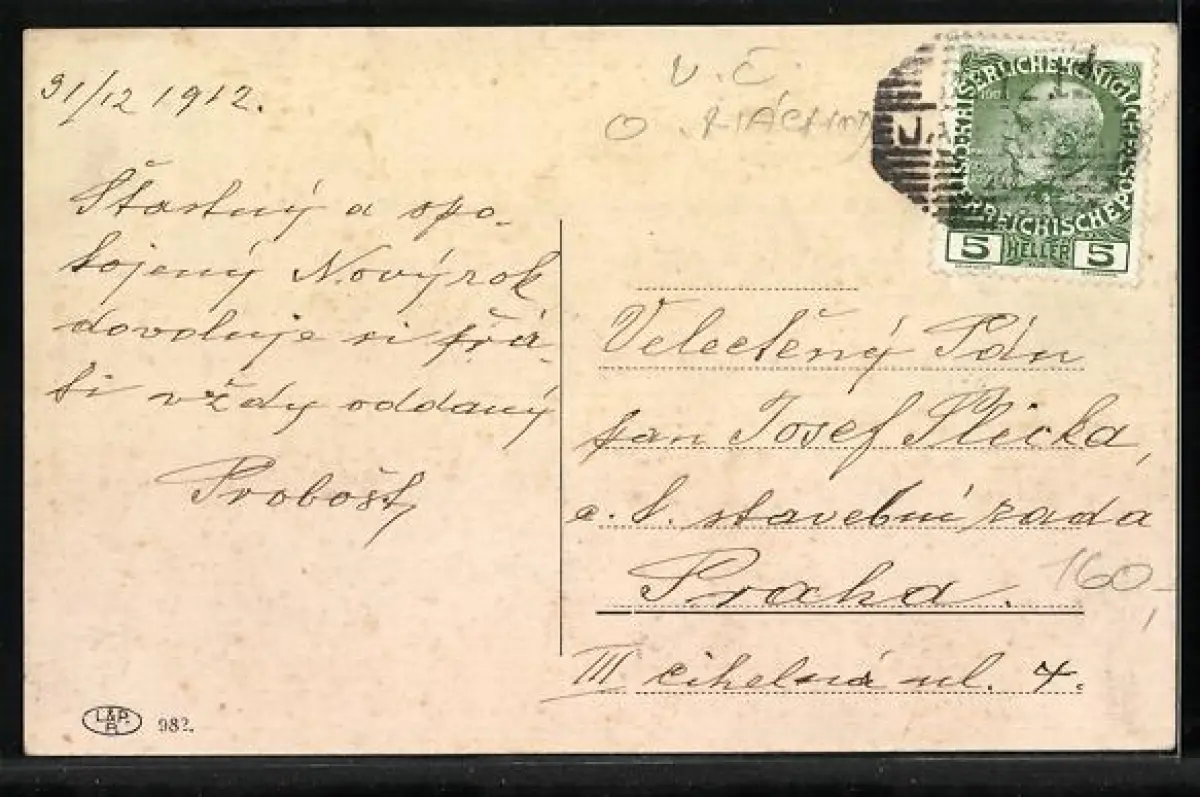 31/12 1912.
Šťastný a spo-
kojený Nový rok
dovoluje si přá-
ti vždy oddaný
Probošt
V. Č.
O
KAISERLICHE KÖNIGLICHE
ÖSTERREICHISCHE POST
5 HELLER 5
Velectěný Pán
pan Josef Plicka,
c. k. stavební rada
Praha.
160,-
III cihelná ul. 4.
L&P.
P.
982.